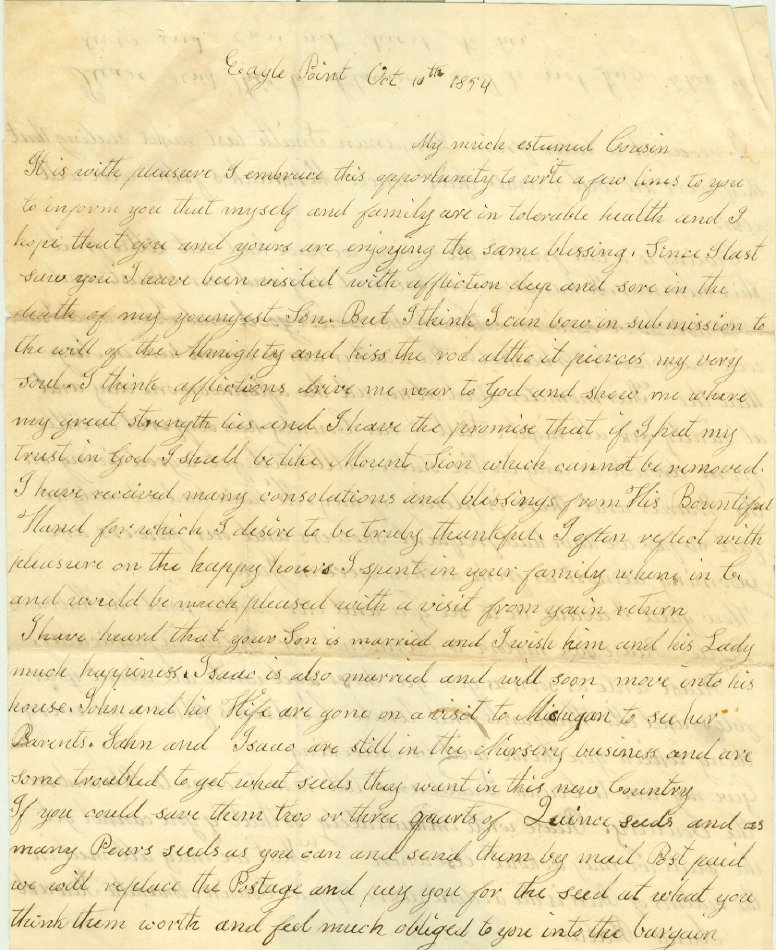 Eagle Point Oct 10th 1854
My much esteemed Cousin
It is with pleasure I embrace this opportunity to write a few lines to you
to inform you that myself and family are in tolerable health and I
hope that you and yours are enjoying the same blessing. Since I last
saw you I have been visited with affliction deep and sore in the
death of my youngest Son. But I think I can bow in submission to
the will of the Almighty and kiss the rod altho it pierces my very
soul. I think afflictions drive me near to God and show me where
my great strength lies and I have the promise that if I put my
trust in God I shall be like Mount Sion which cannot be removed.
I have received many consolations and blessings from His Bountiful
Hand for which I desire to be truly thankful. I often reflect with
pleasure on the happy hours I spent in your family where in C.
and would be much pleased with a visit from you in return
I have heard that your Son is married and I wish him and his Lady
much happiness. Isaac is also married and will soon move into his
house. John and his Wife are gone on a visit to Michigan to see her
Parents. John and Isaac are still in the Nursery business and are
some troubled to get what seeds they want in this new Country
If you could save them two or three quarts of Quince seeds and as
many Pears seeds as you can and send them by mail Post paid
we will replace the Postage and pay you for the seed at what you
think them worth and feel much obliged to you into the bargain